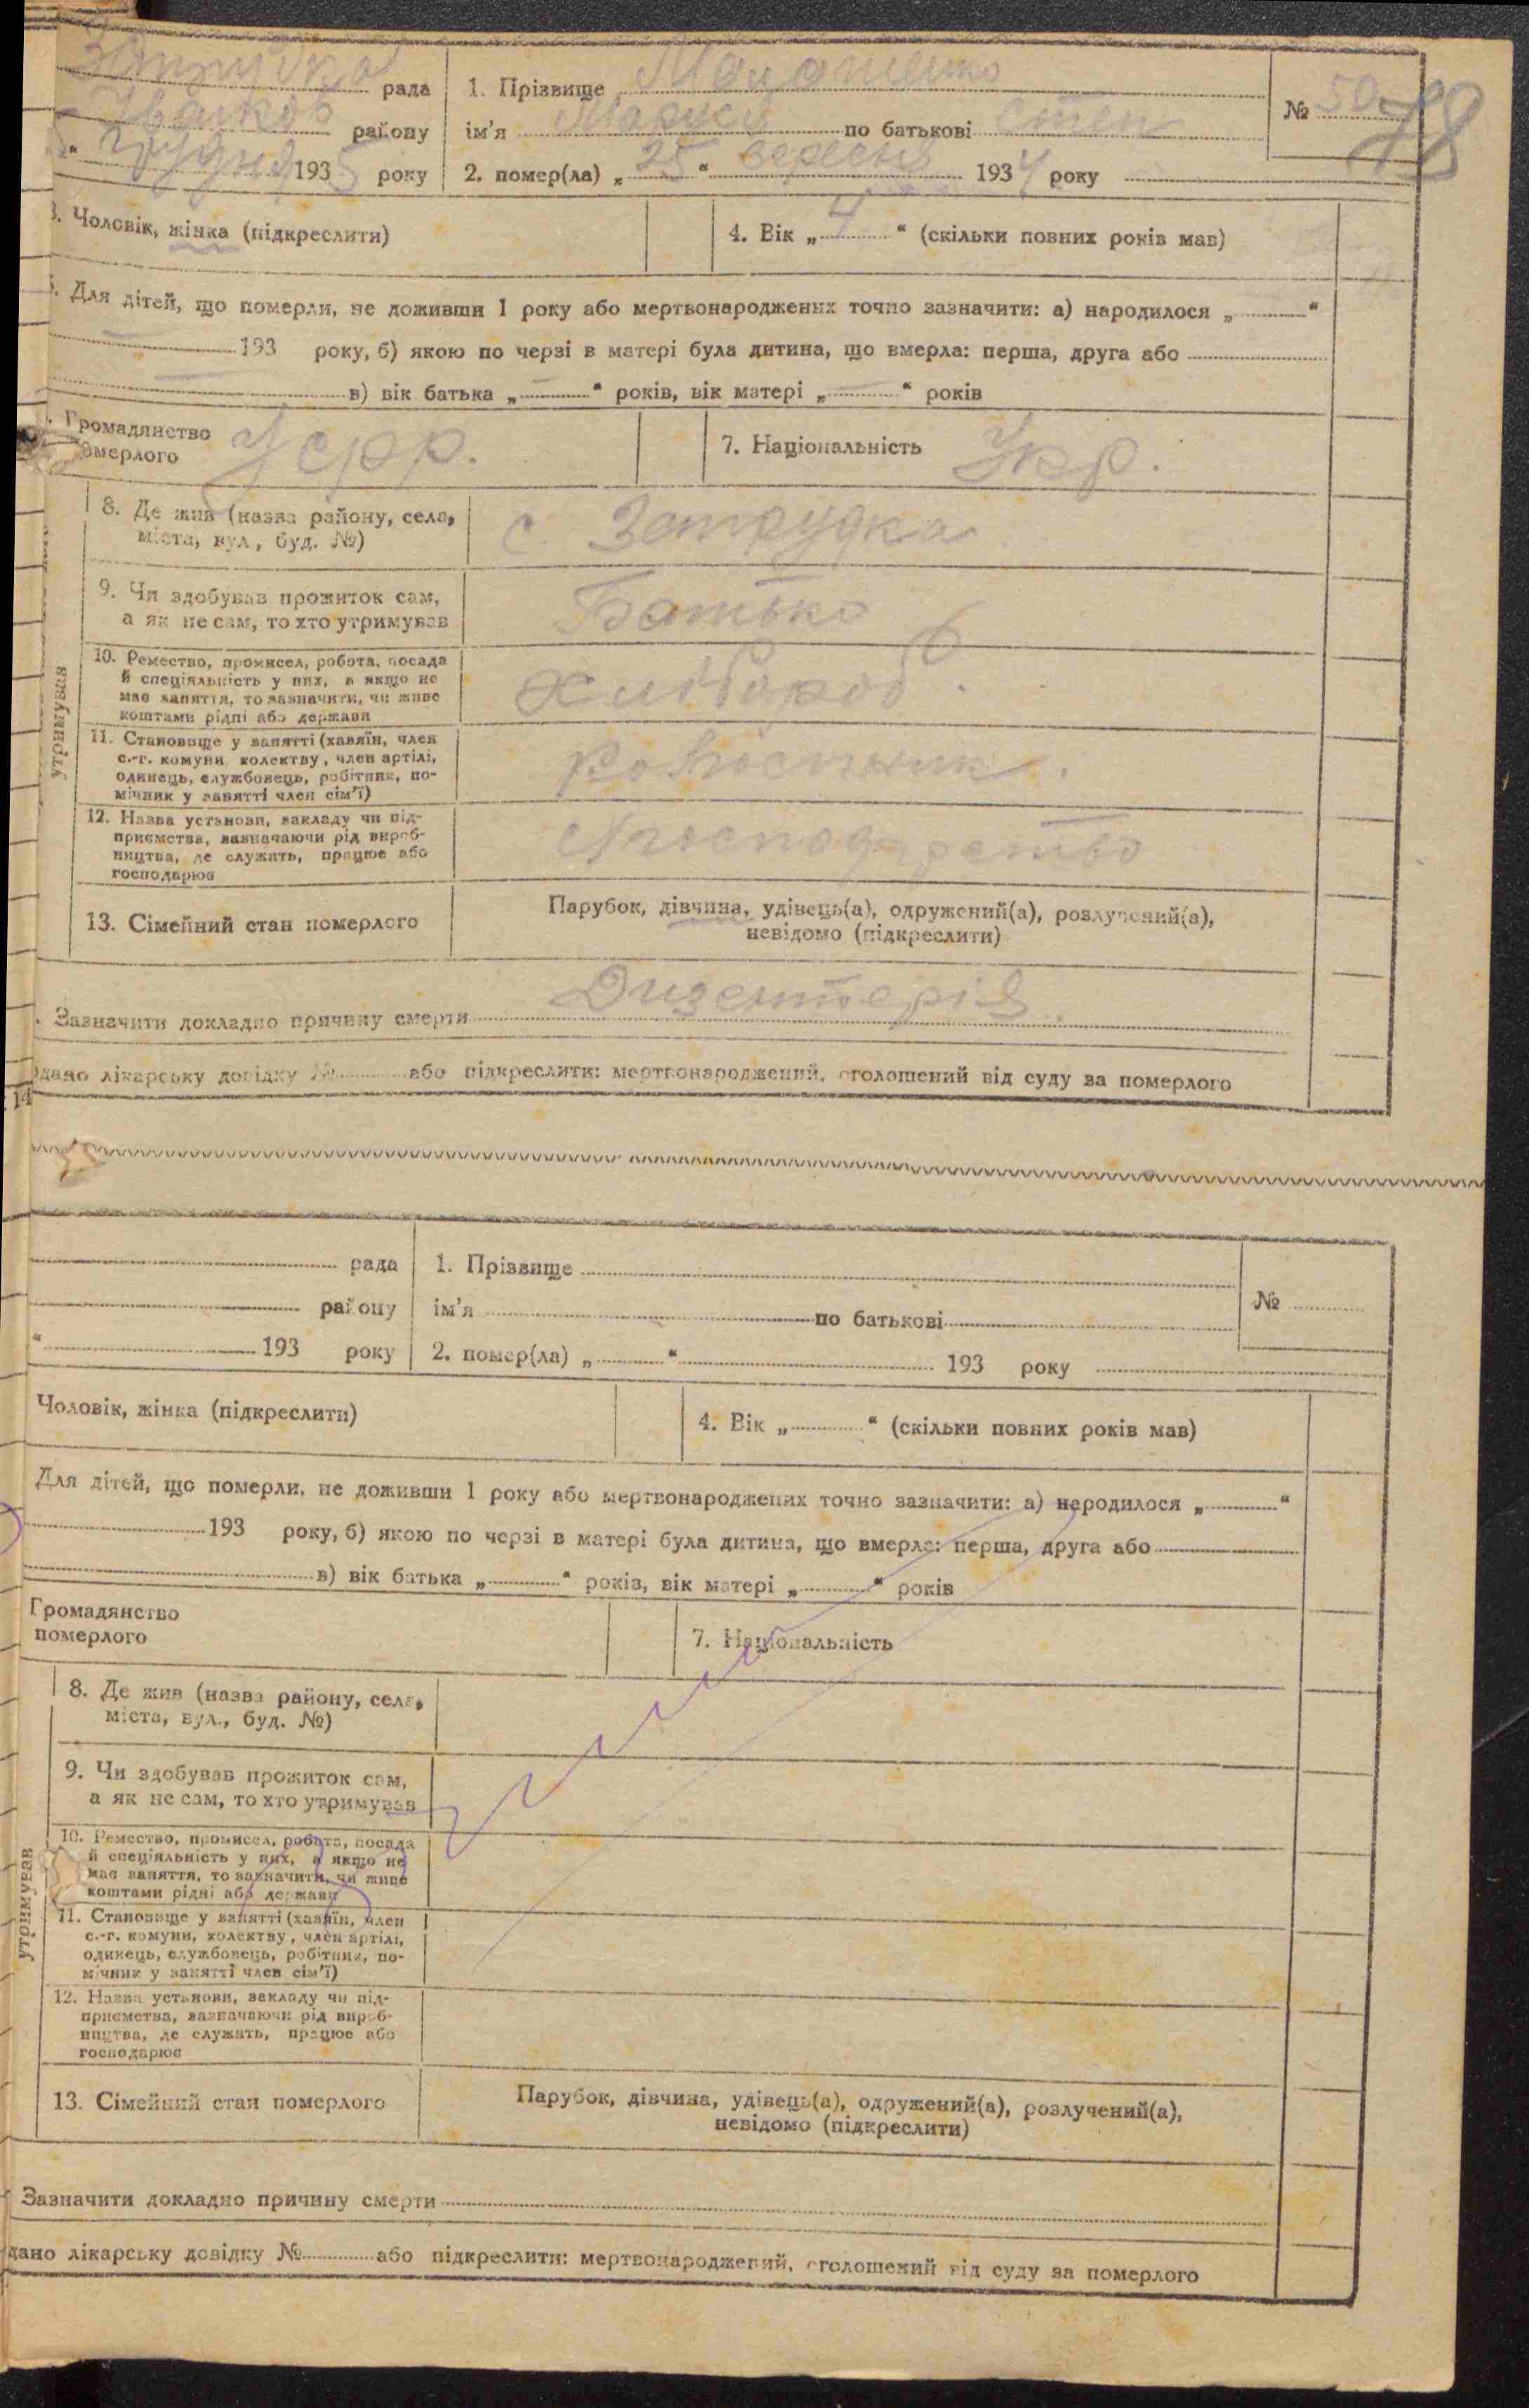 рада
району
193 5 року
1. Прізвище
№ 50
78
ім'я Маруся по батькові Степ
2. помер(ла) „ 25 “ вересня 1934 року
3. Чоловік, жінка (підкреслити)
4. Вік „ 4 “ (скільки повних років мав)
Для дітей, що померли, не доживши 1 року або мертвонароджених точно зазначити: а) народилося „ “
193 року, б) якою по черзі в матері була дитина, що вмерла: перша, друга або
в) вік батька „ “ років, вік матері „ “ років
Громадянство
померлого
Усрр.
7. Національність Укр.
8. Де жив (назва району, села,
міста, вул., буд. №)
с. Затрудка
9. Чи здобував прожиток сам,
а як не сам, то хто утримував
Батько
утримував
10. Ремество, промисел, робота, посада
й спеціяльність у них, а якщо не
має заняття, то зазначити, чи живе
коштами рідні або держави
Хлібороб.
11. Становище у занятті (хазяїн, член
с.-г. комуни, колективу, член артілі,
одинець, службовець, робітник, по-
мічник у занятті член сім'ї)
12. Назва установи, закладу чи під-
приємства, зазначаючи рід вироб-
ництва, де служить, працює або
господарює
13. Сімейний стан померлого
Парубок, дівчина, удівець(а), одружений(а), розлучений(а),
невідомо (підкреслити)
Зазначити докладно причину смерти Дизентерія
дано лікарську довідку № або підкреслити: мертвонароджений, оголошений від суду за померлого
14
рада
району
“ 193 року
1. Прізвище
№
ім'я по батькові
2. помер(ла) „ “ 193 року
Чоловік, жінка (підкреслити)
4. Вік „ “ (скільки повних років мав)
Для дітей, що померли, не доживши 1 року або мертвонароджених точно зазначити: а) народилося „ “
193 року, б) якою по черзі в матері була дитина, що вмерла: перша, друга або
в) вік батька „ “ років, вік матері „ “ років
Громадянство
померлого
7. Національність
8. Де жив (назва району, села,
міста, вул., буд. №)
9. Чи здобував прожиток сам,
а як не сам, то хто утримував
утримував
10. Ремество, промисел, робота, посада
й спеціяльність у них, а якщо не
має заняття, то зазначити, чи живе
коштами рідні або держави
11. Становище у занятті (хазяїн, член
с.-г. комуни, колективу, член артілі,
одинець, службовець, робітник, по-
мічник у занятті член сім'ї)
12. Назва установи, закладу чи під-
приємства, зазначаючи рід вироб-
ництва, де служить, працює або
господарює
13. Сімейний стан померлого
Парубок, дівчина, удівець(а), одружений(а), розлучений(а),
невідомо (підкреслити)
Зазначити докладно причину смерти
дано лікарську довідку № або підкреслити: мертвонароджений, оголошений від суду за померлого